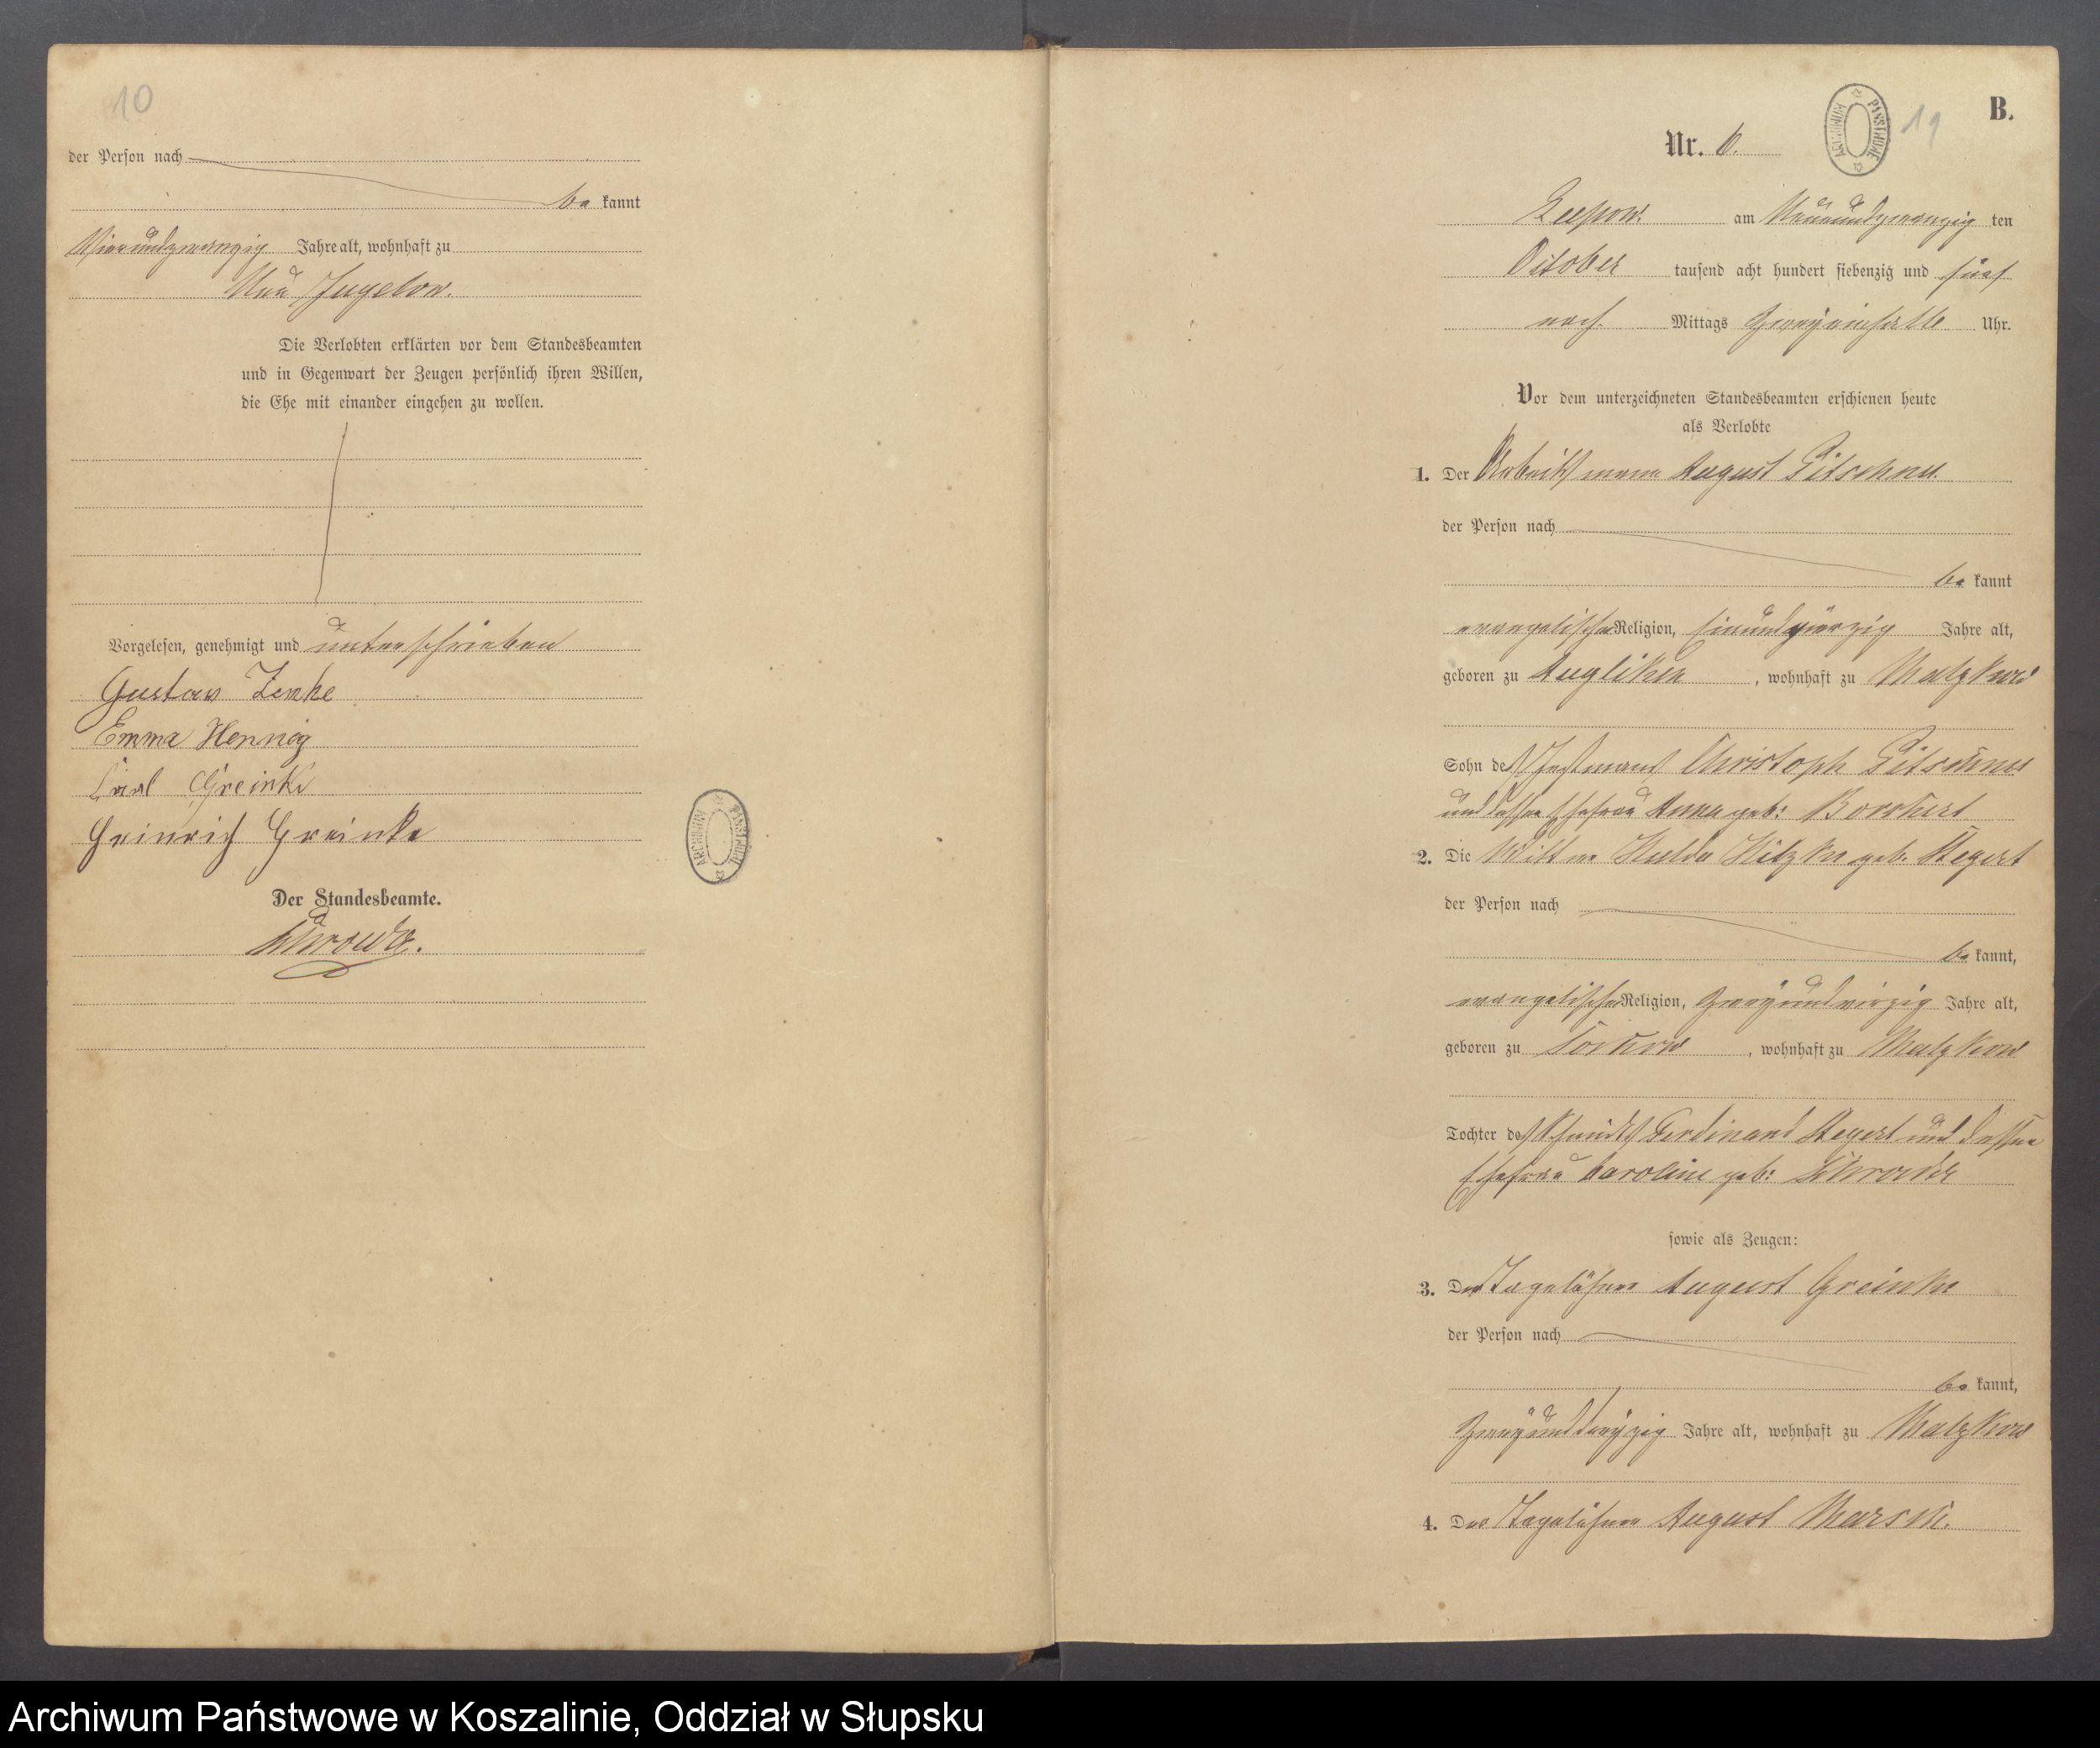 10
der Person nach
be kannt
Vierundzwanzig Jahre alt, wohnhaft zu
Neu Jugelow.
Die Verlobten erklärten vor dem Standesbeamten
und in Gegenwart der Zeugen persönlich ihren Willen,
die Ehe mit einander eingehen zu wollen.
Vorgelesen, genehmigt und unterschrieben
Gustav Zenke
Emma Hennig
Carl Greinke
Heinrich Greinke
Der Standesbeamte.
ARCHIWUM PAŃSTWOWE
B.
19
ARCHIWUM PAŃSTWOWE
Nr. 6.
am Neunundzwanzig ten
October tausend acht hundert siebenzig und fünf
nach Mittags Uhr.
Vor dem unterzeichneten Standesbeamten erschienen heute
als Verlobte
1. Der Arbeitsmann August
der Person nach
be kannt
evangelischer Religion, Jahre alt,
geboren zu , wohnhaft zu Malzkow
Sohn des Instmanns Christoph
und dessen Ehefrau Anna geb: Borchert
2. Die Wittwe Hulda geb. Stegert
der Person nach
be kannt,
evangelischer Religion, Zweyundvierzig Jahre alt,
geboren zu , wohnhaft zu Malzkow
Tochter des Schmidts Ferdinand Stegert und dessen
Ehefrau Caroline geb: Schroeder
sowie als Zeugen:
3. Der Tagelöhner August Greinke
der Person nach
be kannt,
Zweyunddreyzig Jahre alt, wohnhaft zu Malzkow
4. Der Tagelöhner August
Archiwum Państwowe w Koszalinie, Oddział w Słupsku